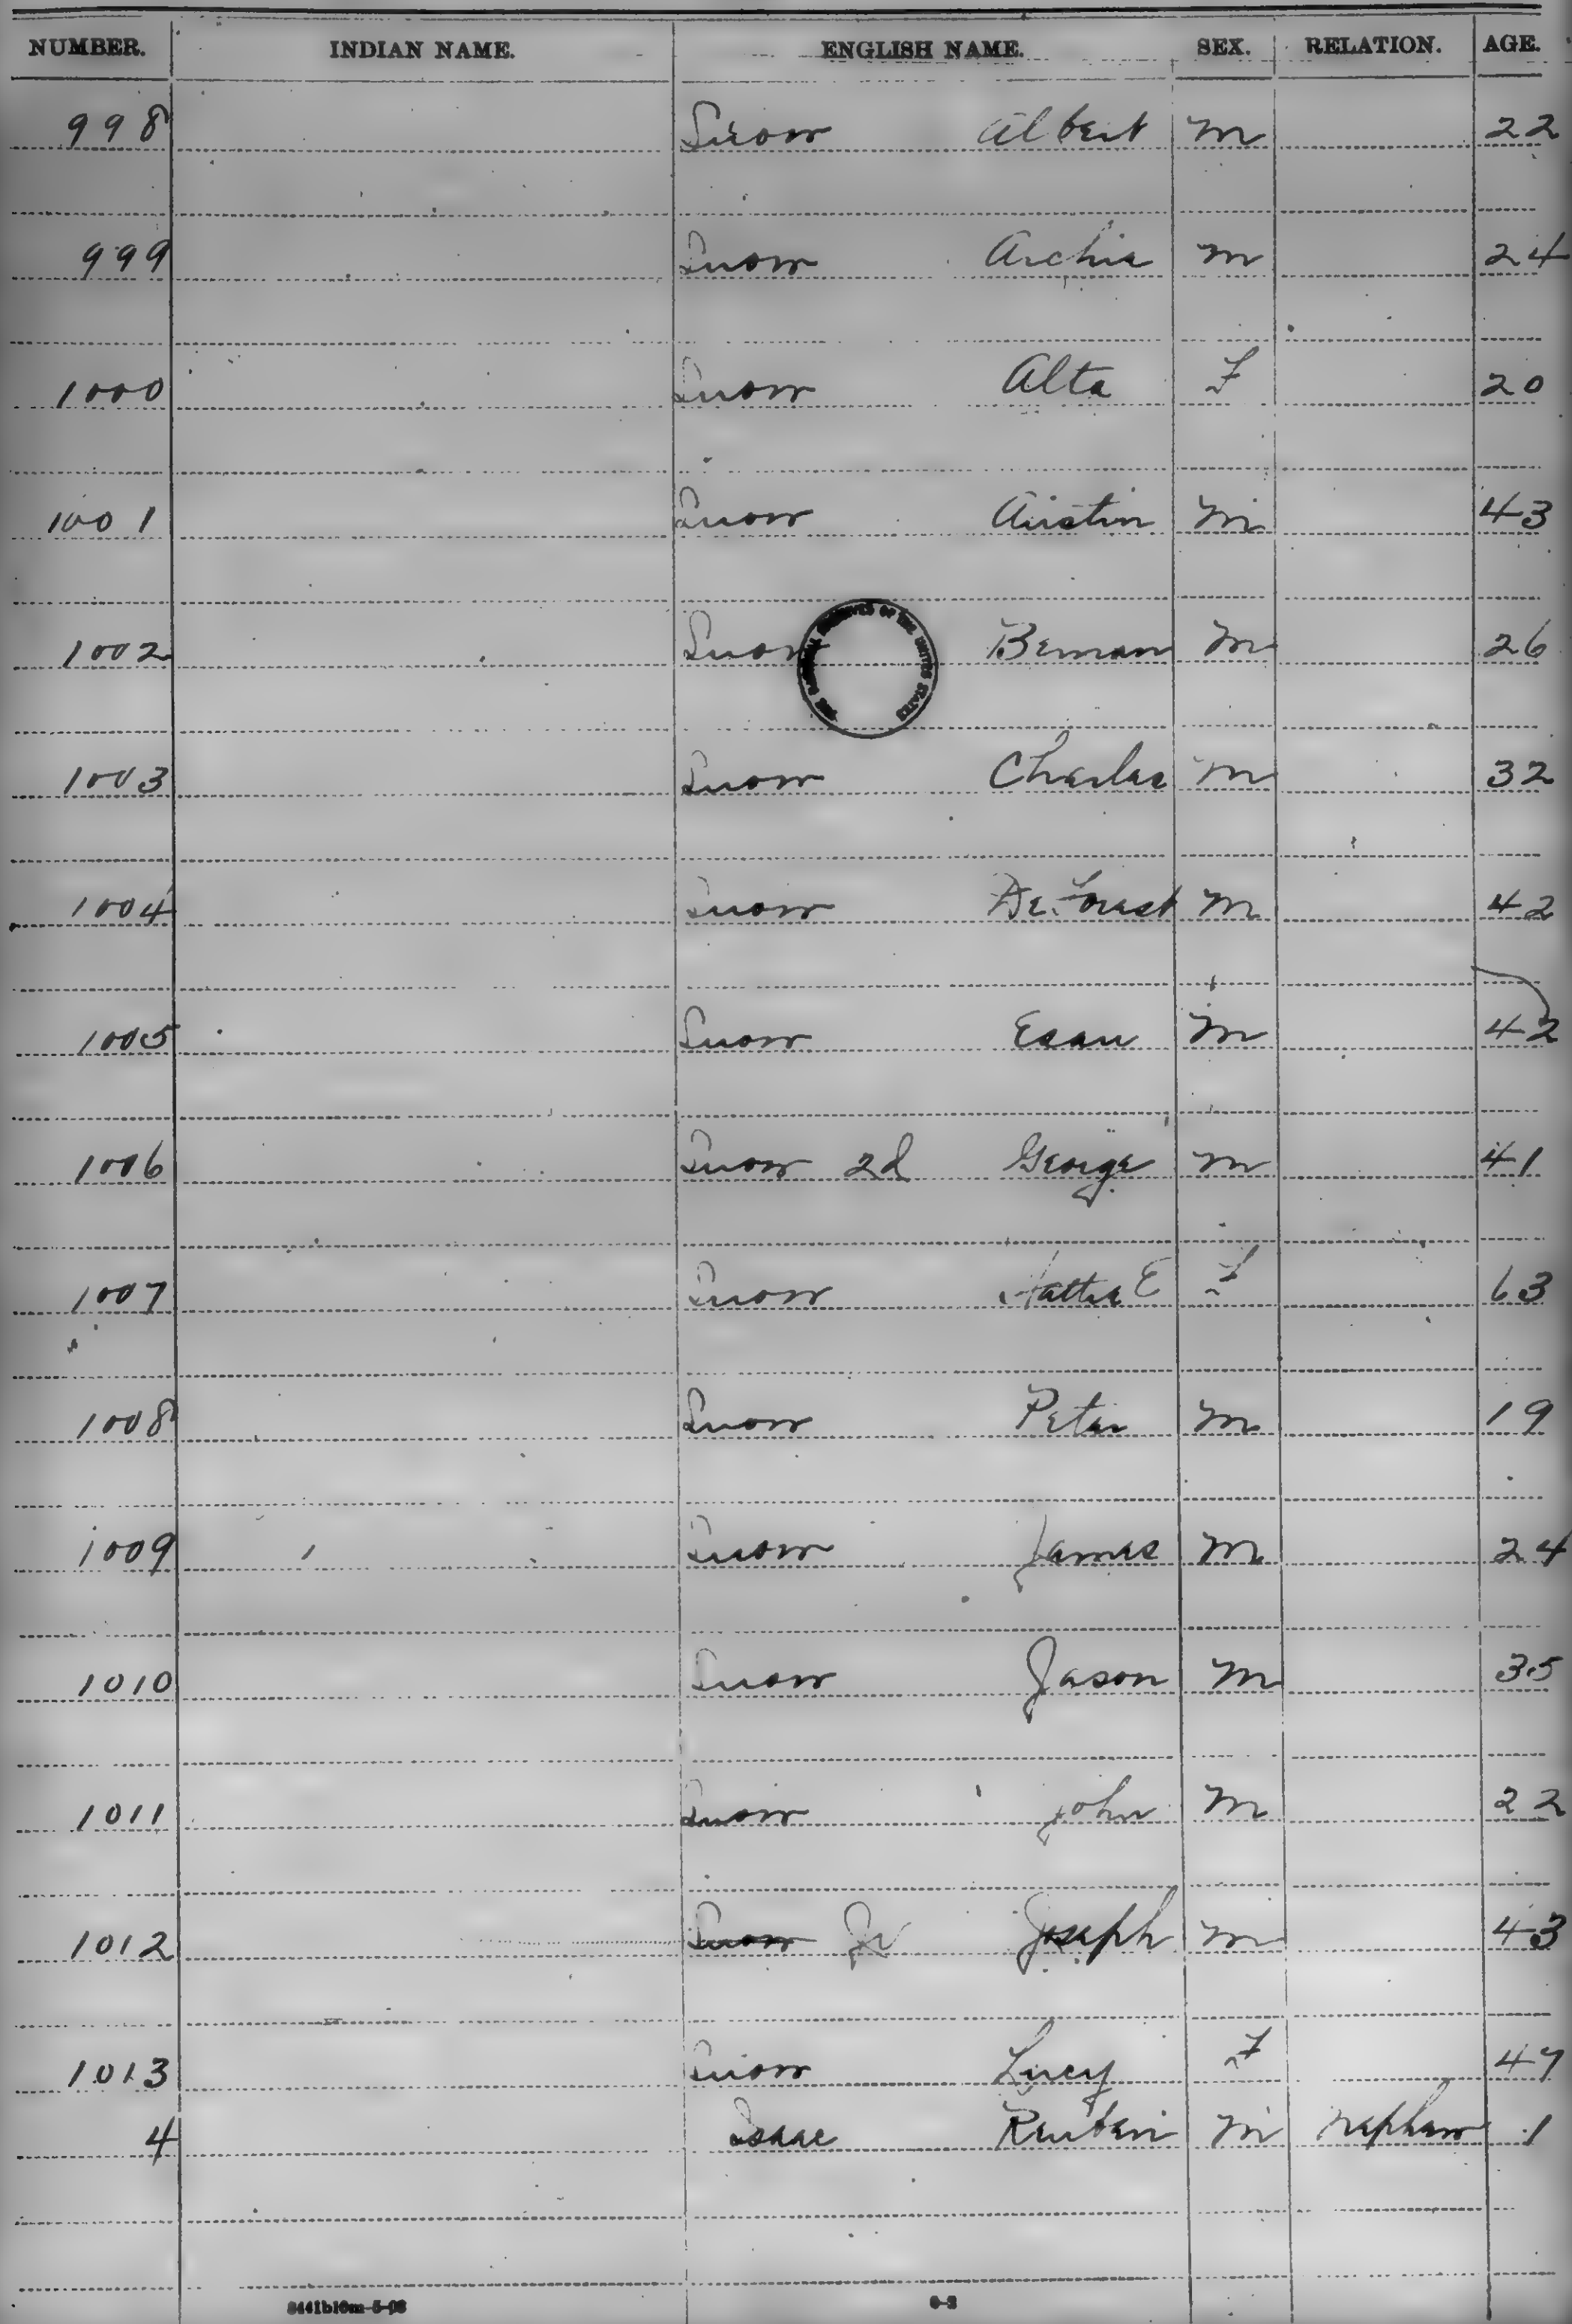 NUMBER. INDIAN NAME. ENGLISH NAME. SEX. RELATION. AGE.
998 Snow Albert M 22
999 Snow Archie M 24
1000 Snow Alta F 20
1001 Snow Austin M 43
1002 Snow Beman M 26
THE NATIONAL ARCHIVES OF THE UNITED STATES
1003 Snow Charles M 32
1004 Snow De Forest M 42
1005 Snow Esau M 42
1006 Snow 2d George M 41
1007 Snow Hattie E F 63
1008 Snow Peter M 19
1009 Snow James M 24
1010 Snow Jason M 35
1011 Snow John M 22
1012 Snow Jr Joseph M 43
1013 Snow Lucy F 47
4 Isaac Reuben M Nephew 1
8441b10m-5-08 6-3